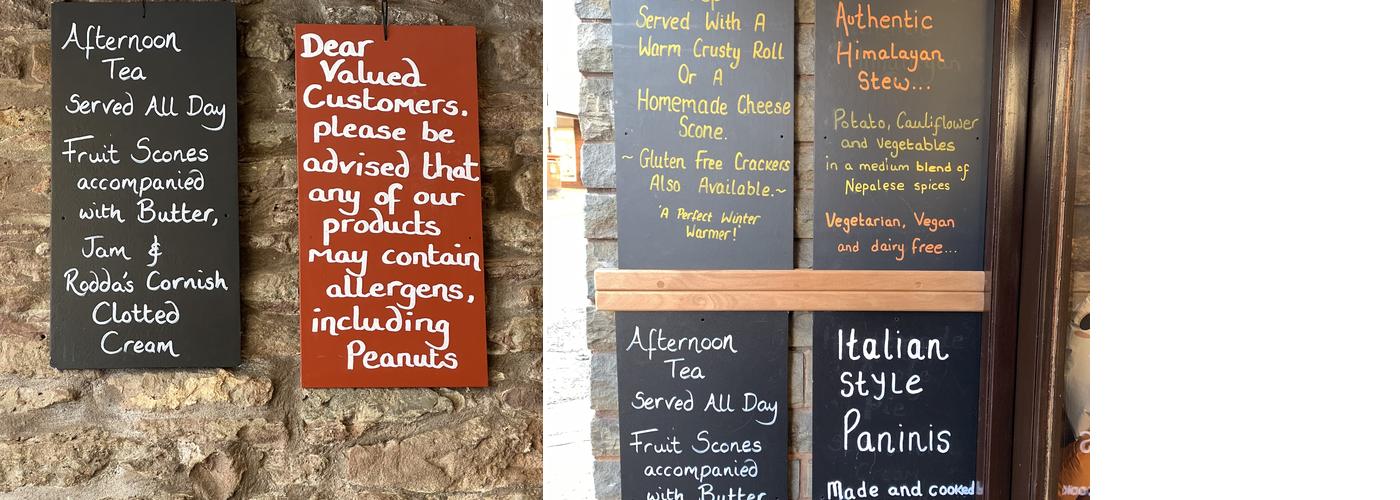 Afternoon
Tea
Served All Day
Fruit Scones
accompanied
with Butter,
Jam &
Rodda's Cornish
Clotted
Cream
Dear
Valued
Customers.
please be
advised that
any of our
products
may contain
allergens,
including
Peanuts
Served With A
Warm Crusty Roll
Or A
Homemade Cheese
Scone.
~ Gluten Free Crackers
Also Available.~
'A Perfect Winter
Warmer!'
Authentic
Himalayan
Stew...
Potato, Cauliflower
and Vegetables
in a medium blend of
Nepalese spices
Vegetarian, Vegan
and dairy free...
Afternoon
Tea
Served All Day
Fruit Scones
accompanied
with Butter
Italian
Style
Paninis
Made and cooked